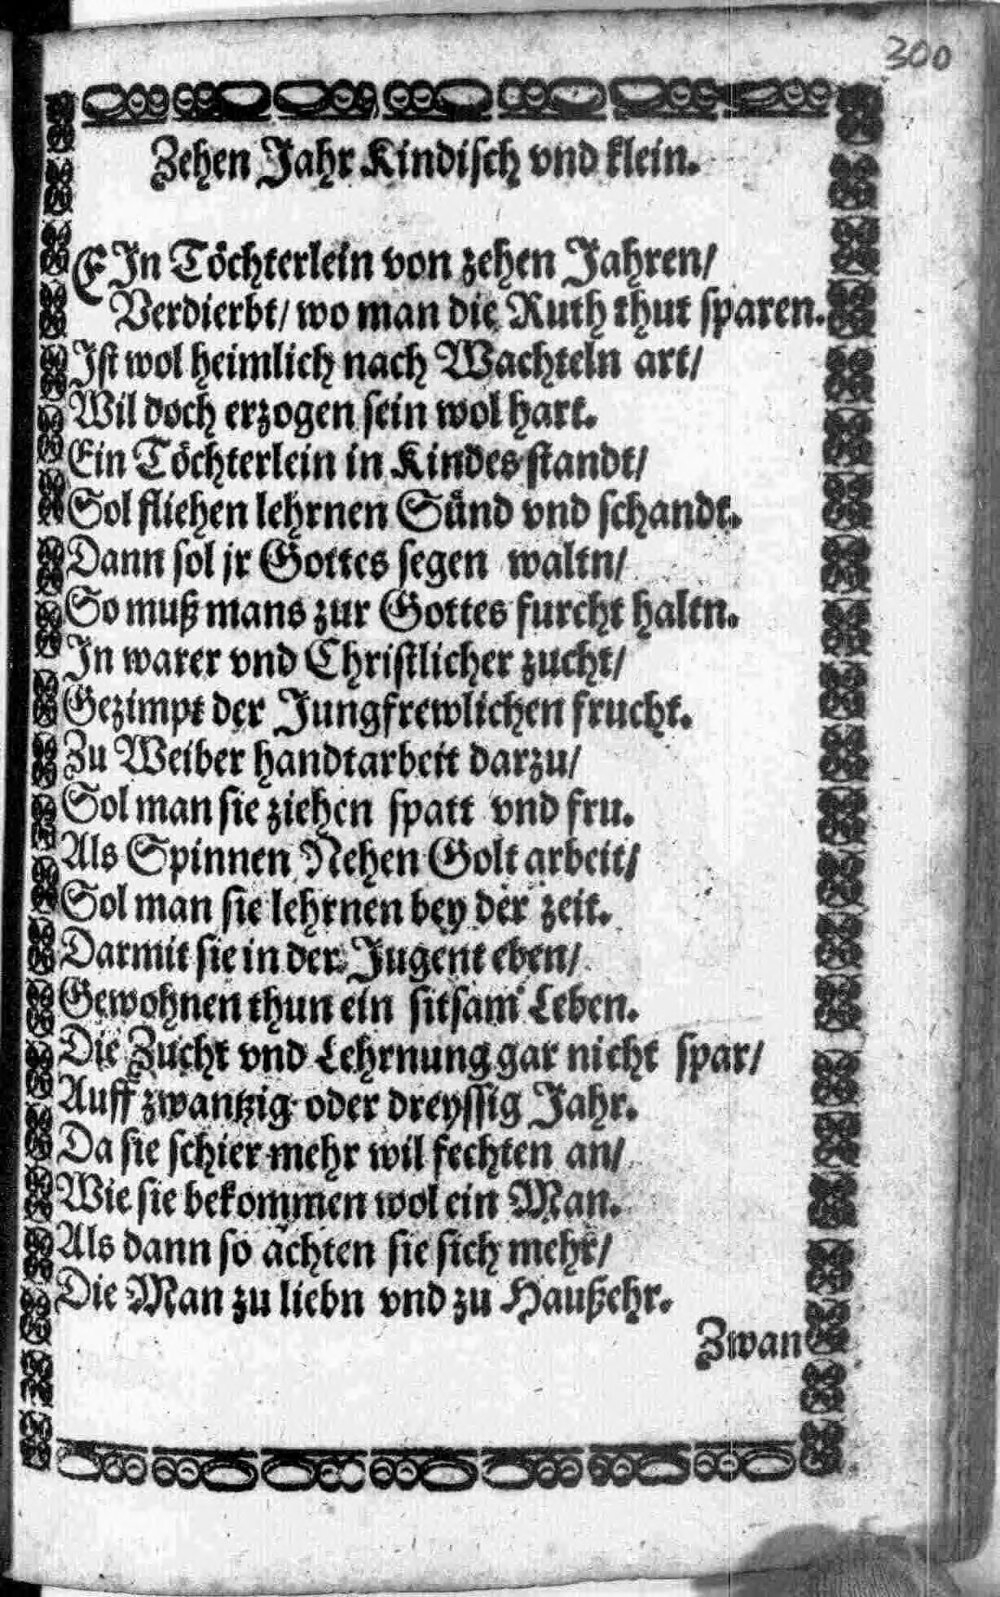 300
Zehen Jahr Kindisch vnd klein.
EIn Töchterlein von zehen Jahren/
Verdierbt/ wo man die Ruth thut sparen.
Ist wol heimlich nach Wachteln art/
Wil doch erzogen sein wol hart.
Ein Töchterlein in Kindes standt/
Sol fliehen lehrnen Sünd vnd schandt.
Dann sol jr Gottes segen waltn/
So muß mans zur Gottes furcht haltn.
In warer vnd Christlicher zucht/
Gezimpt der Jungfrewlichen frucht.
Zu Weiber handtarbeit darzu/
Sol man sie ziehen spatt vnd fru.
Als Spinnen Nehen Golt arbeit/
Sol man sie lehrnen bey der zeit.
Darmit sie in der Jugent eben/
Gewohnen thun ein sitsam Leben.
Die Zucht vnd Lehrnung gar nicht spar/
Auff zwantzig oder dreyssig Jahr.
Da sie schier mehr wil fechten an/
Wie sie bekommen wol ein Man.
Als dann so achten sie sich mehr/
Die Man zu liebn vnd zu Haußehr.
Zwan